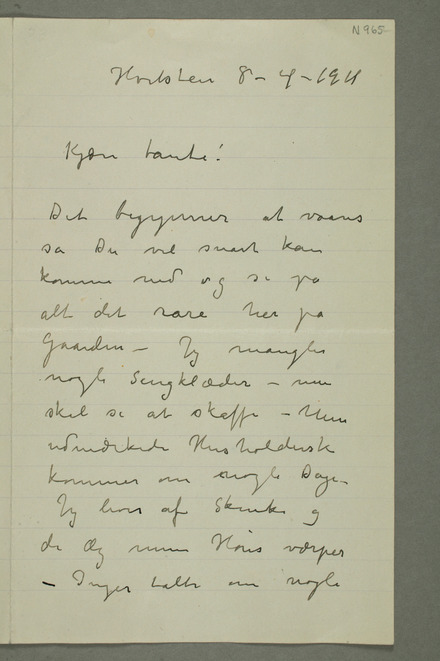 N 965
Hvitsten 8-4-1911
Kjære tante!
Det begynner at vaares
sa Du vil snart kan
komme ned og se pa
alt det rare her pa
Gaarden – Jeg mangler
nogle Sengklæder – men
skal se at skaffe – Min
udmærkede Husholderske
kommer om nogle Dage –
Jeg lever af Skinke og
de Æg mine Høns værper
– Inger talte om nogle